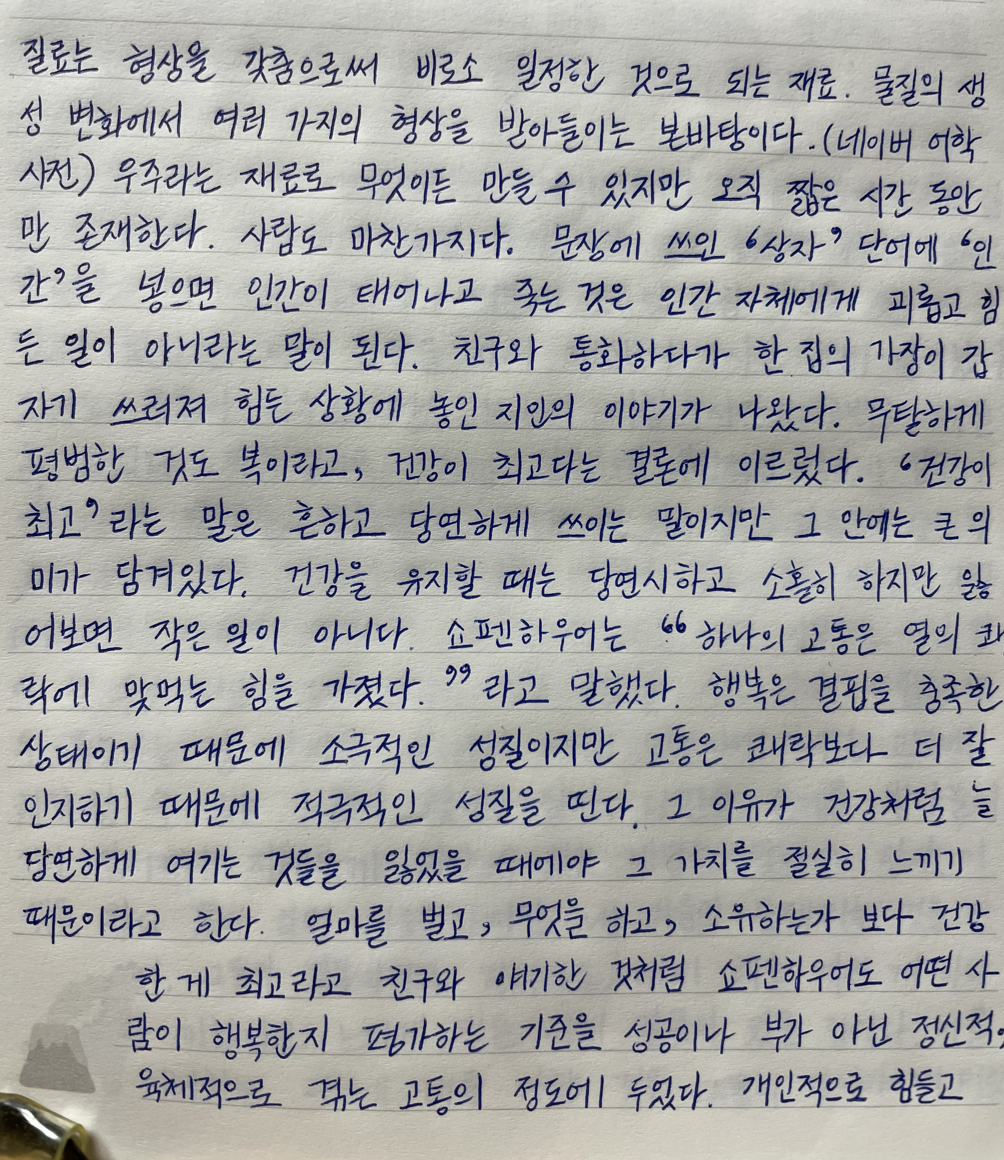 질료는 형상을 갖춤으로써 비로소 일정한 것으로 되는 재료. 물질의 생
성 변화에서 여러 가지의 형상을 받아들이는 본바탕이다.(네이버 어학
사전) 우주라는 재료로 무엇이든 만들 수 있지만 오직 짧은 시간 동안
만 존재한다. 사람도 마찬가지다. 문장에 쓰인 ‘상자’ 단어에 ‘인
간’을 넣으면 인간이 태어나고 죽는 것은 인간 자체에게 괴롭고 힘
든 일이 아니라는 말이 된다. 친구와 통화하다가 한 집의 가장이 갑
자기 쓰러져 힘든 상황에 놓인 지인의 이야기가 나왔다. 무탈하게
평범한 것도 복이라고, 건강이 최고다는 결론에 이르렀다. ‘건강이
최고’라는 말은 흔하고 당연하게 쓰이는 말이지만 그 안에는 큰 의
미가 담겨있다. 건강을 유지할 때는 당연시하고 소홀히 하지만 잃
어보면 작은 일이 아니다. 쇼펜하우어는 “하나의 고통은 열의 쾌
락에 맞먹는 힘을 가졌다.”라고 말했다. 행복은 결핍을 충족한
상태이기 때문에 소극적인 성질이지만 고통은 쾌락보다 더 잘
인지하기 때문에 적극적인 성질을 띤다. 그 이유가 건강처럼 늘
당연하게 여기는 것들을 잃었을 때에야 그 가치를 절실히 느끼기
때문이라고 한다. 얼마를 벌고, 무엇을 하고, 소유하는가 보다 건강
한 게 최고라고 친구와 얘기한 것처럼 쇼펜하우어도 어떤 사
람이 행복한지 평가하는 기준을 성공이나 부가 아닌 정신적,
육체적으로 겪는 고통의 정도에 두었다. 개인적으로 힘들고